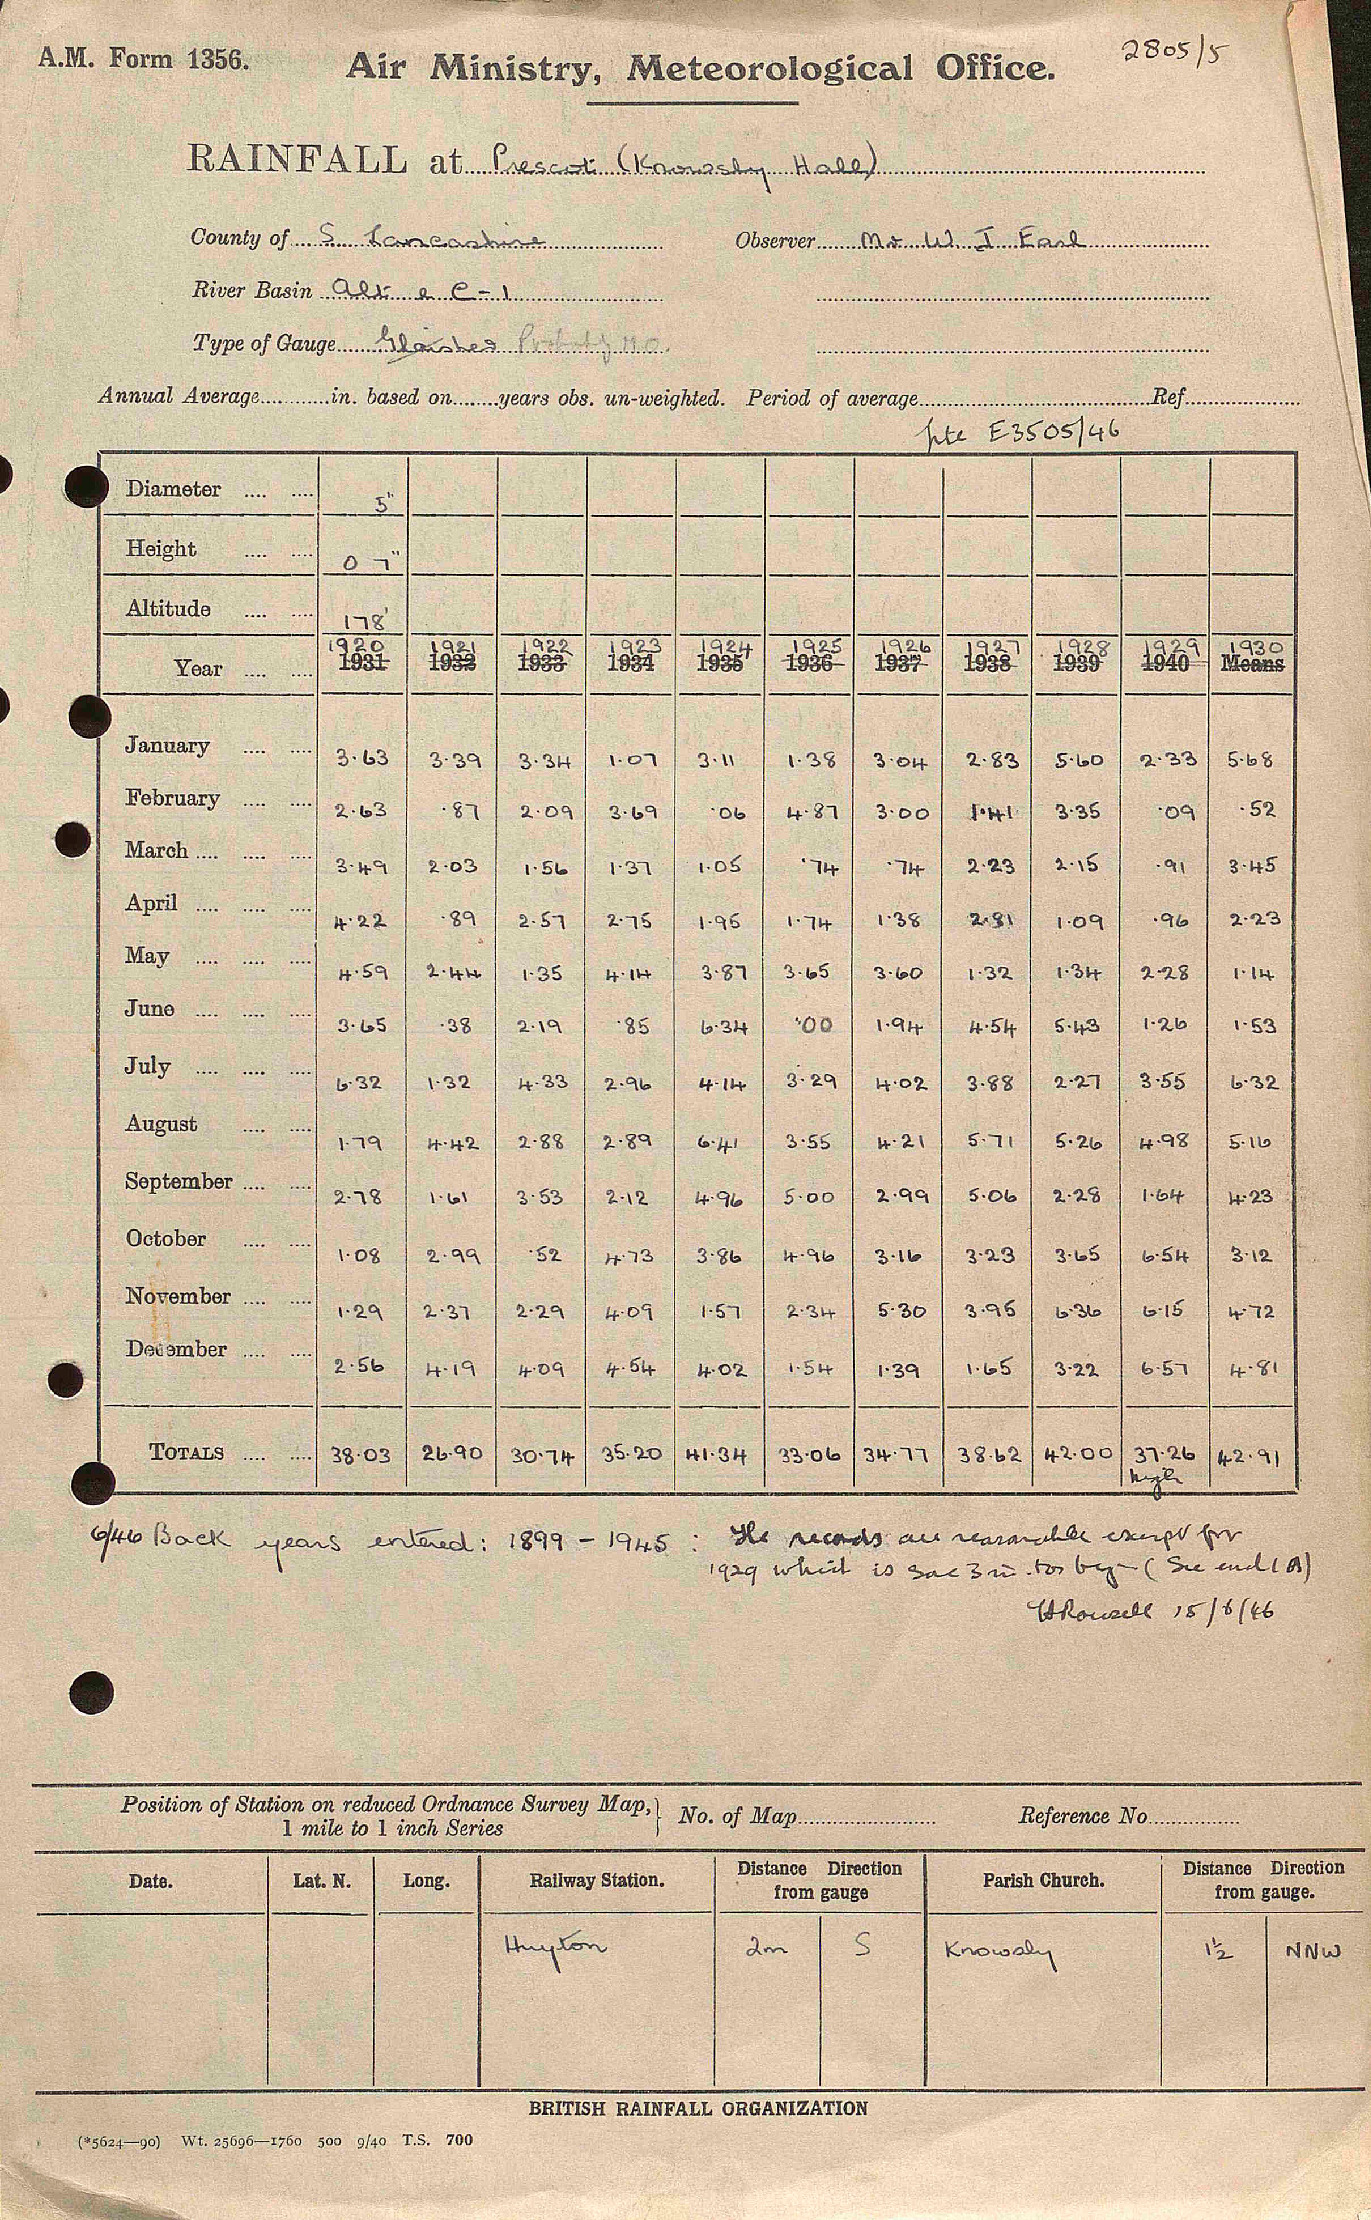 A.M. Form 1356.
Air Ministry, Meteorological Office.
2805/5
RAINFALL at Prescot (Knowsly Hall)
County of S. Lancashire Observer Mr W J Earl
River Basin Alt & C-1
Type of Gauge Glaisher Probably M.O.
Annual Average in. based on years obs. un-weighted. Period of average Ref
pte E3505/46
Diameter 5"
Height 0 7"
Altitude 178'
1920 1921 1922 1923 1924 1925 1926 1927 1928 1929 1930
Year 1931 1932 1933 1934 1935 1936 1937 1938 1939 1940 Means
January 3.63 3.39 3.34 1.07 3.11 1.38 3.04 2.83 5.60 2.33 5.68
February 2.63 .87 2.09 3.69 .06 4.87 3.00 1.41 3.35 .09 .52
March 3.49 2.03 1.56 1.37 1.05 .74 .74 2.23 2.15 .91 3.45
April 4.22 .89 2.57 2.75 1.95 1.74 1.38 2.81 1.09 .96 2.23
May 4.59 2.44 1.35 4.14 3.87 3.65 3.60 1.32 1.34 2.28 1.14
June 3.65 .38 2.19 .85 6.34 .00 1.94 4.54 5.43 1.26 1.53
July 6.32 1.32 4.33 2.96 4.14 3.29 4.02 3.88 2.27 3.55 6.32
August 1.79 4.42 2.88 2.89 6.41 3.55 4.21 5.71 5.26 4.98 5.16
September 2.78 1.61 3.53 2.12 4.96 5.00 2.99 5.06 2.28 1.64 4.23
October 1.08 2.99 .52 4.73 3.86 4.96 3.16 3.23 3.65 6.54 3.12
November 1.29 2.37 2.29 4.09 1.57 2.34 5.30 3.95 6.36 6.15 4.72
December 2.56 4.19 4.09 4.54 4.02 1.54 1.39 1.65 3.22 6.57 4.81
TOTALS 38.03 26.90 30.74 35.20 41.34 33.06 34.77 38.62 42.00 37.26 42.91
high
6/46 Back years entered: 1899 - 1945 : The records are reasonable except for
1929 which is some 3 in. too big (See encl 1A)
15/6/46
Position of Station on reduced Ordnance Survey Map, No. of Map Reference No.
1 mile to 1 inch Series
Date. Lat. N. Long. Railway Station. Distance Direction from gauge Parish Church. Distance Direction from gauge.
Huyton 2m S Knowsly 1½ NNW
BRITISH RAINFALL ORGANIZATION
(*5624—90) Wt. 25696—1760 500 9/40 T.S. 700